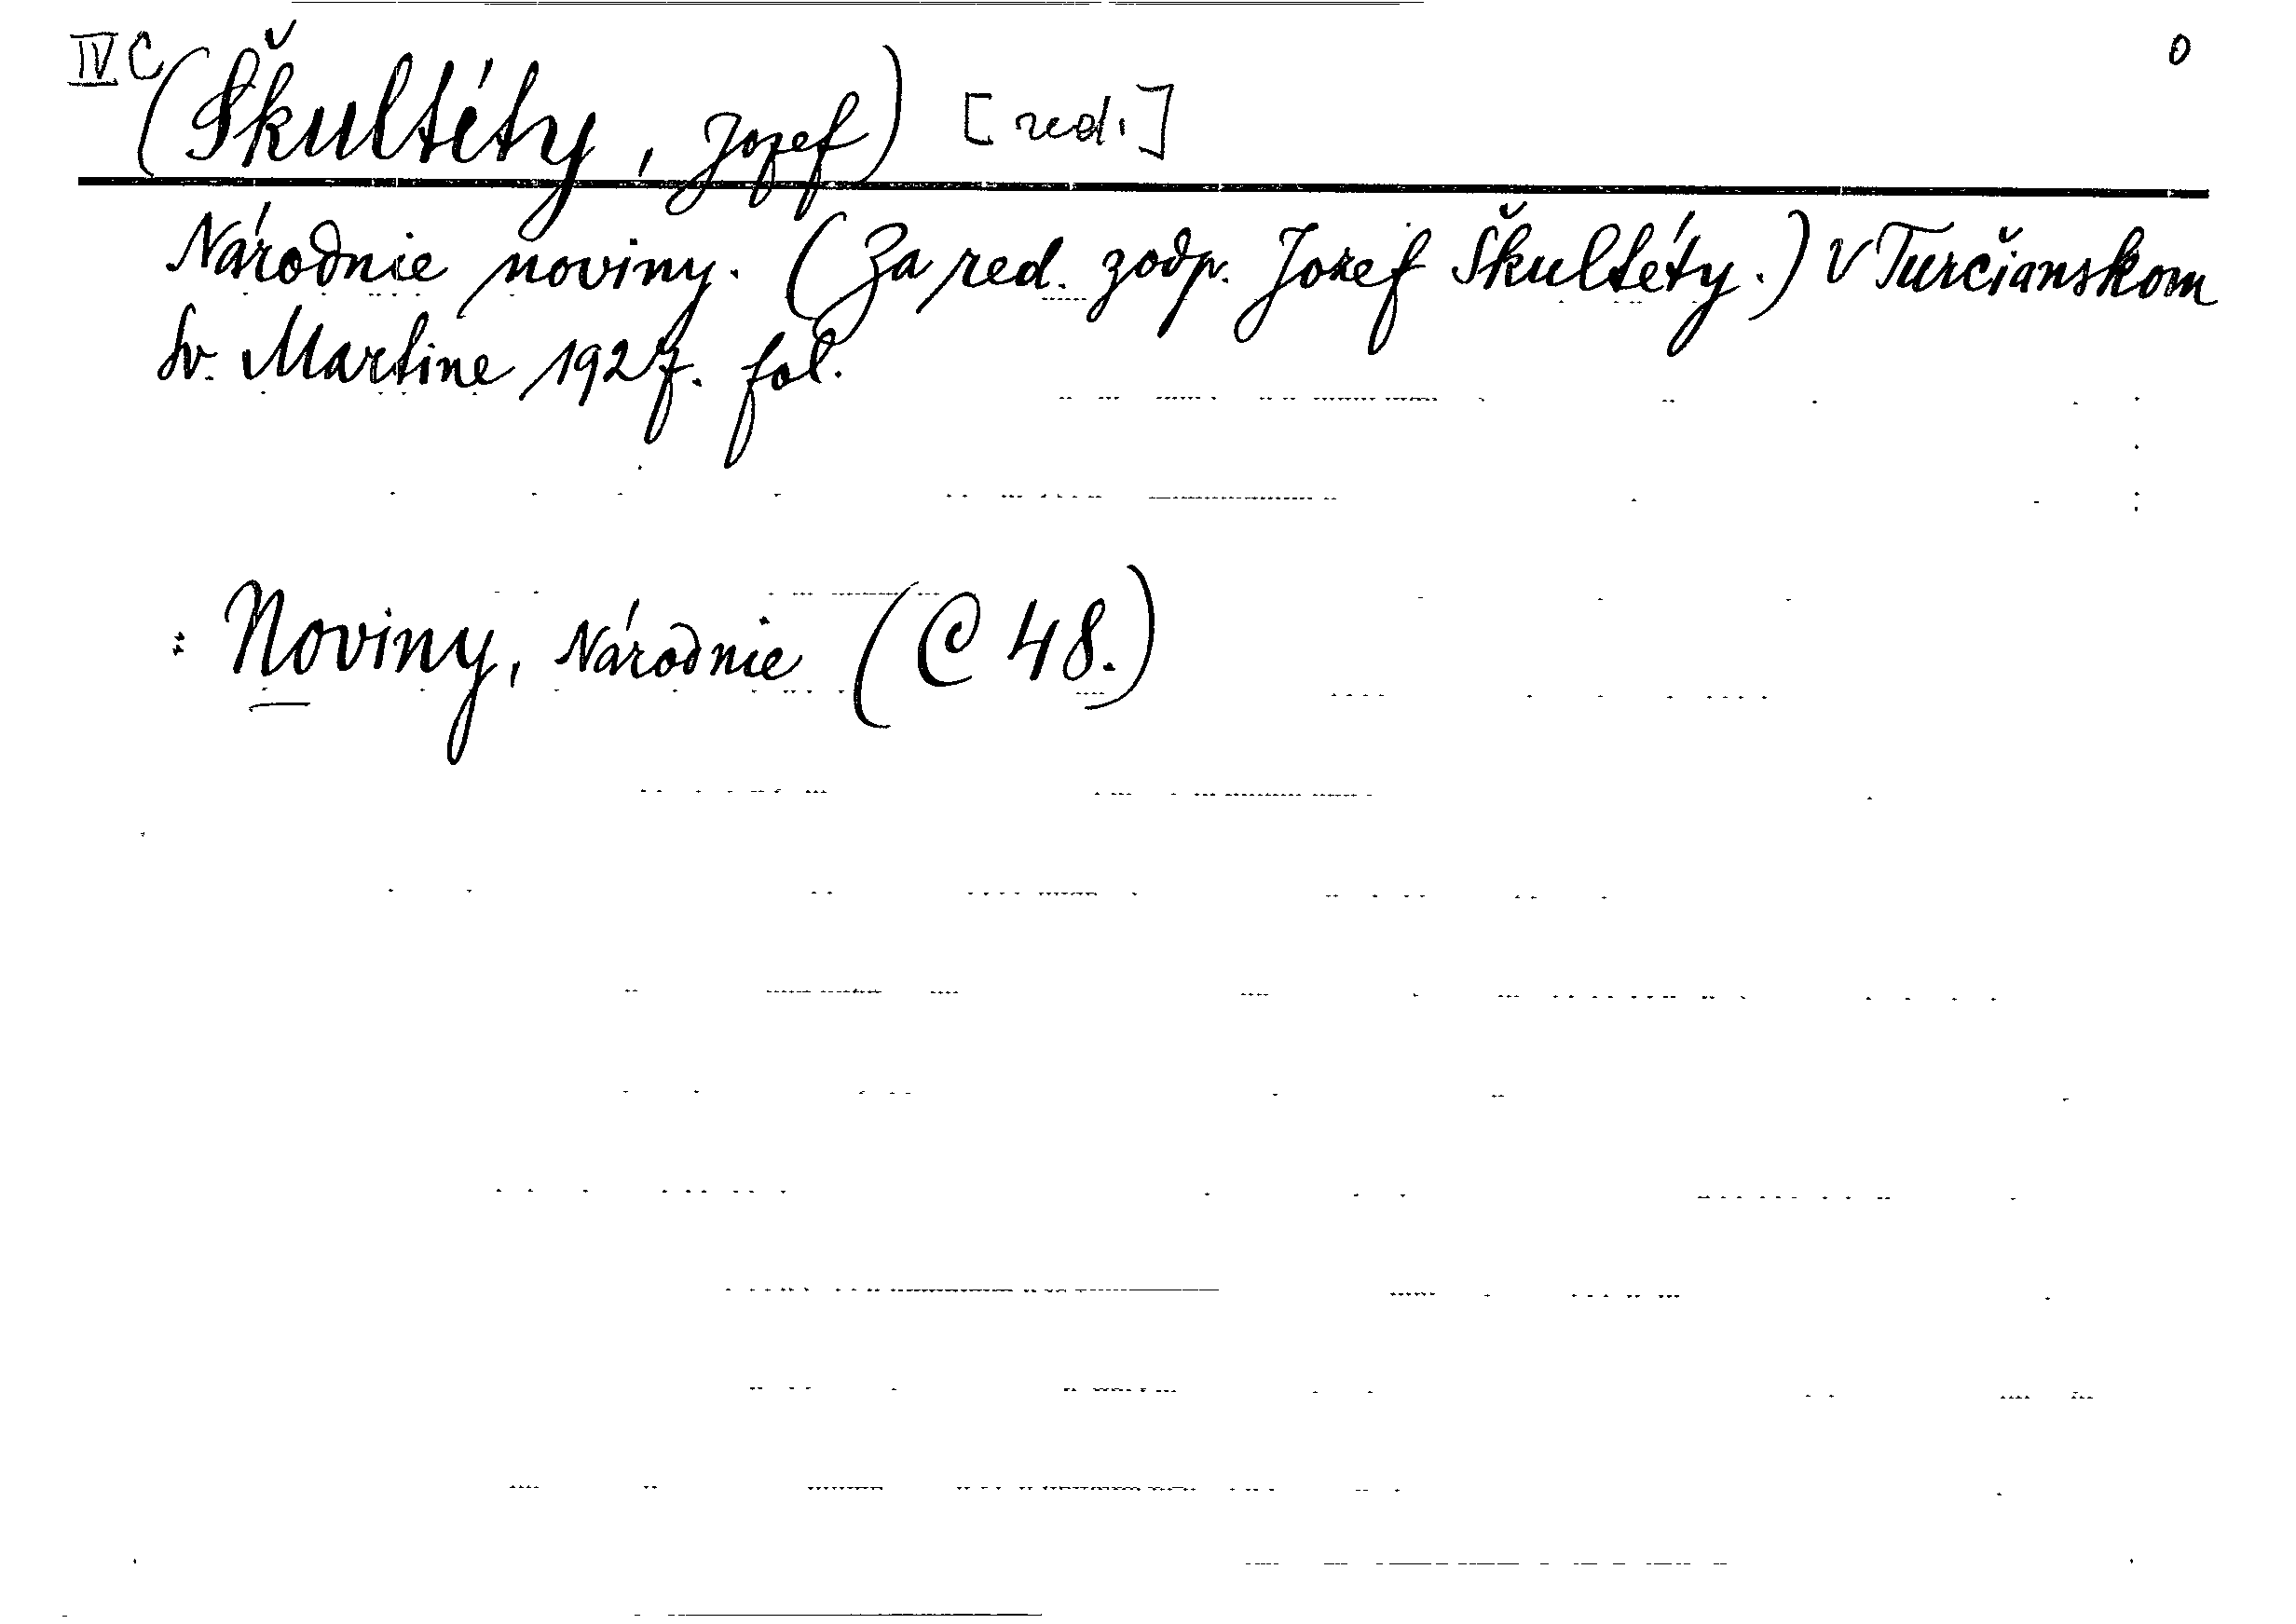 IV C 0
(Škultéty, Jozef) [red.]
Národnie noviny. (Za red. zodp. Jozef Škultéty.) V Turčianskom
Sv. Martine 1927. fol.
: Noviny, Národnie (C 48.)